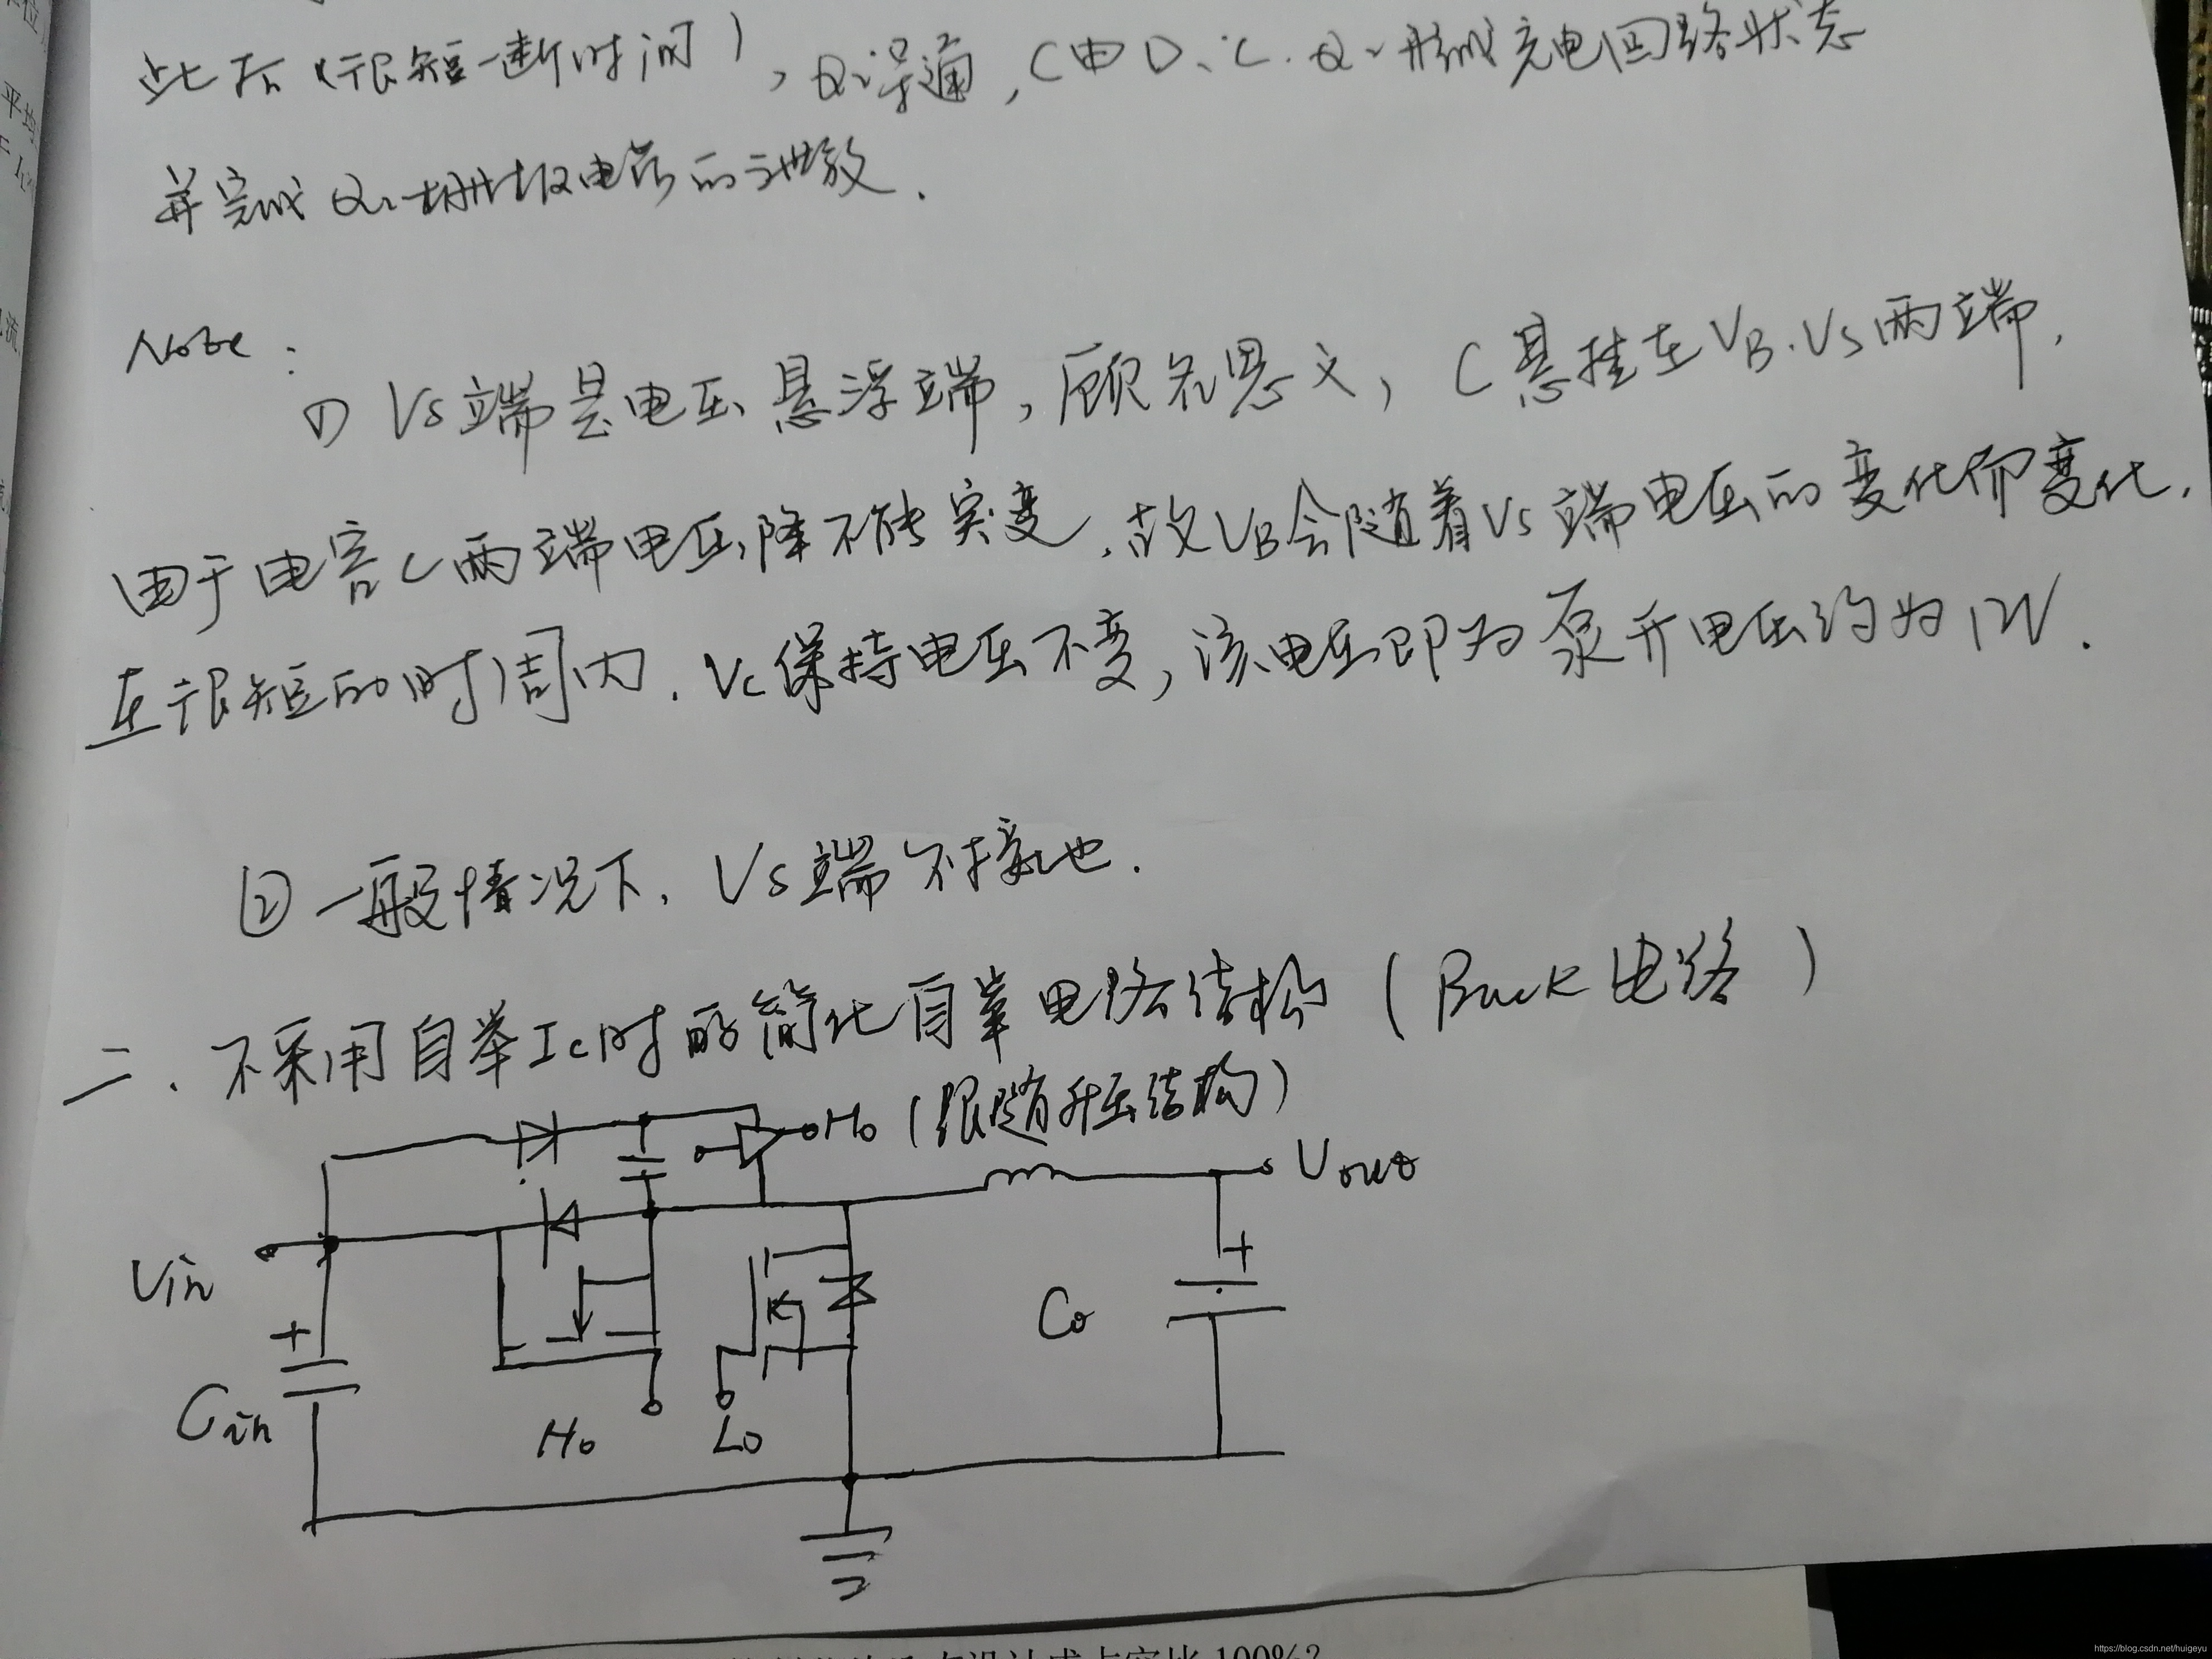 此后(很短一断时间),Q₂导通,C由D、C、Q₂形成充电回路状态
并完成Q₁栅极电荷的泄放.
Note:
① Vs端是电压悬浮端,顾名思义,C悬挂在VB、Vs两端,
由于电容C两端电压降不能突变,故VB会随着Vs端电压的变化而变化,
在很短的时间内,Vc保持电压不变,该电压即为泵升电压约为12V.
② 一般情况下,Vs端不接地.
二、不采用自举Ic时的简化自举电路结构(Buck电路)
Ho(跟随升压结构)
Vout
Vin
+
+
Co
Cin
Ho
Lo
100%?
https://blog.csdn.net/huigeyu